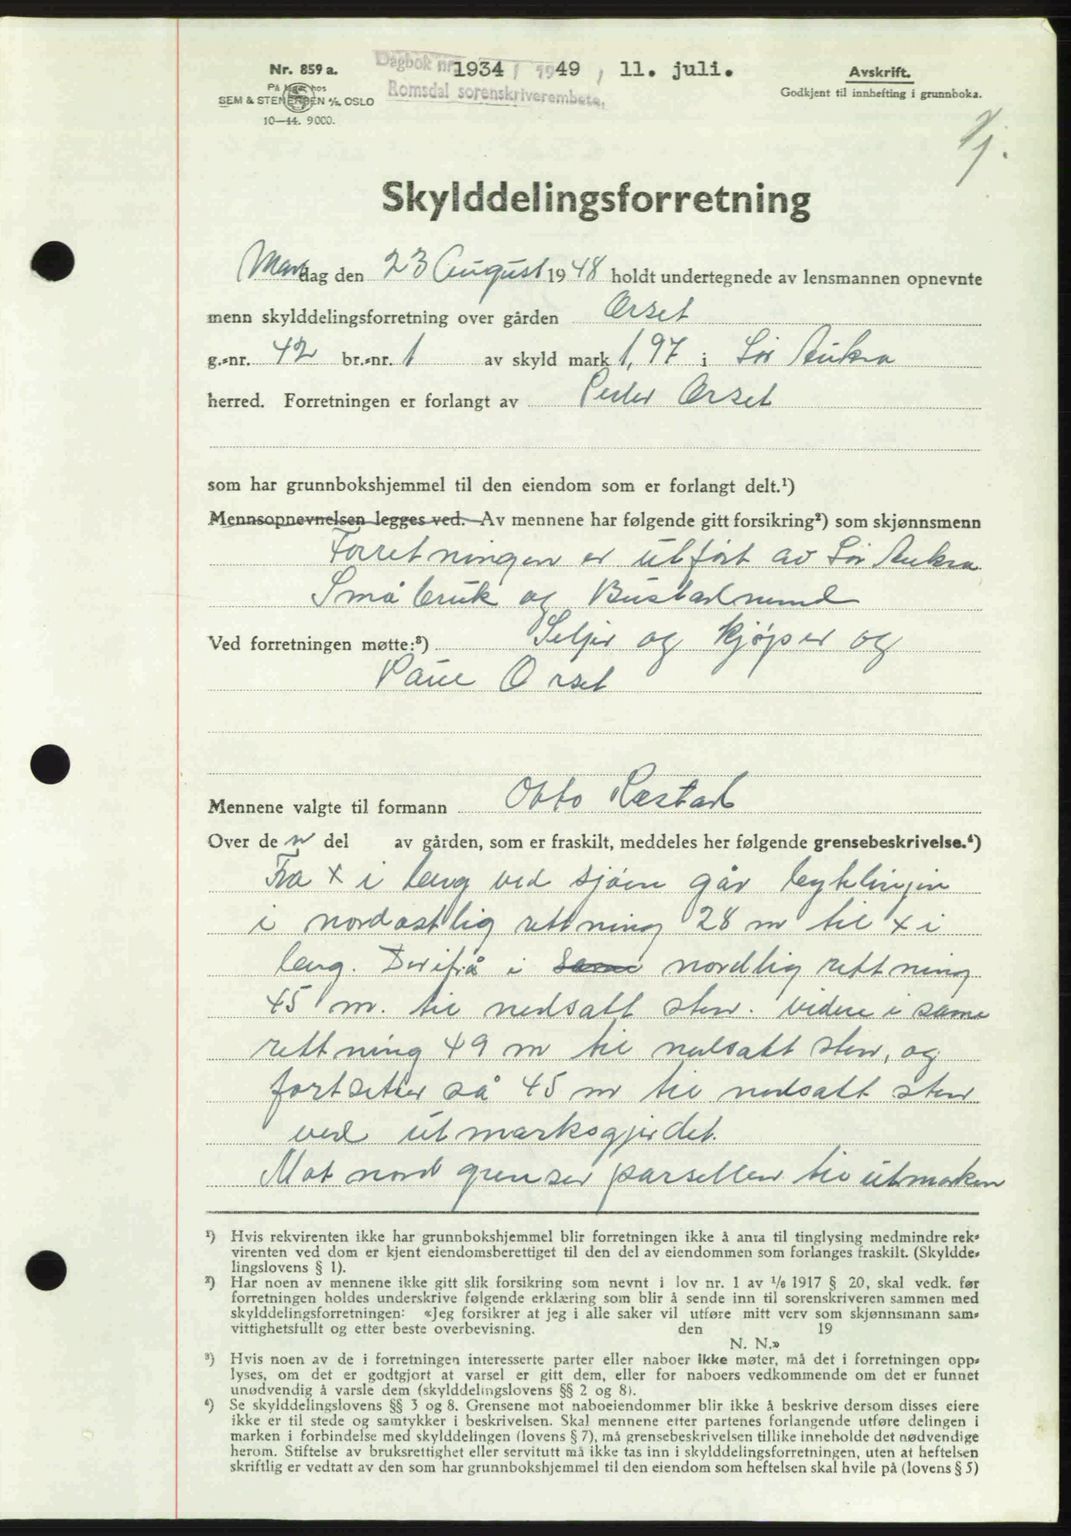 Nr. 859 a.
På lager hos
SEM & STENERSEN A/S, OSLO
10—44. 9000.
Dagbok nr. 1934 / 1949, 11. juli.
Romsdal sorenskriverembete.
Avskrift.
Godkjent til innhefting i grunnboka.
Skylddelingsforretning
Man dag den 23 August 1948 holdt undertegnede av lensmannen opnevnte
menn skylddelingsforretning over gården Orset
g.-nr. 42 br.-nr. 1 av skyld mark 1,97 i Sør Aukra
herred. Forretningen er forlangt av Peder Orset
som har grunnbokshjemmel til den eiendom som er forlangt delt.¹)
Mennsopnevnelsen legges ved. Av mennene har følgende gitt forsikring²) som skjønnsmenn
Forretningen er utført av Sør Aukra
Småbruk og Bustadnemd
Ved forretningen møtte:³) Seljer og kjøper og
Paul Orset
Mennene valgte til formann Otto Røstad
Over de n del av gården, som er fraskilt, meddeles her følgende grensebeskrivelse.⁴)
Fra x i berg ved sjøen går byklingin
i nordøstlig rettning 28 m til x i
berg. Derifrå i same nordlig rettning
45 m. til nedsatt sten. videre i same
rettning 49 m til nedsatt sten, og
fortsetter så 45 m til nedsatt sten
ved utmarksgjerdet.
Mot nord grenser parsellen til utmarken
¹) Hvis rekvirenten ikke har grunnbokshjemmel blir forretningen ikke å anta til tinglysing medmindre rek-
virenten ved dom er kjent eiendomsberettiget til den del av eiendommen som forlanges fraskilt. (Skyldde-
lingslovens § 1).
²) Har noen av mennene ikke gitt slik forsikring som nevnt i lov nr. 1 av ¹/₆ 1917 § 20, skal vedk. før
forretningen holdes underskrive følgende erklæring som blir å sende inn til sorenskriveren sammen med
skylddelingsforretningen: «Jeg forsikrer at jeg i alle saker vil utføre mitt verv som skjønnsmann sam-
vittighetsfullt og etter beste overbevisning. den 19
N. N.»
³) Hvis noen av de i forretningen interesserte parter eller naboer ikke møter, må det i forretningen opp-
lyses, om det er godtgjort at varsel er gitt dem, eller for naboers vedkommende om det er funnet
unødvendig å varsle dem (skylddelingslovens §§ 2 og 8).
⁴) Se skylddelingslovens §§ 3 og 8. Grensene mot naboeiendommer blir ikke å beskrive dersom disses eiere
ikke er til stede og samtykker i beskrivelsen. Skal mennene etter partenes forlangende utføre delingen i
marken i forbindelse med skylddelingen (lovens § 7), må grensebeskrivelsen tillike inneholde det nødvendige
herom. Stiftelse av bruksrettighet eller servitutt må ikke tas inn i skylddelingsforretningen, uten at heftelsen
skriftlig er vedtatt av den som har grunnbokshjemmel til den eiendom som heftelsen skal hvile på (lovens § 5)